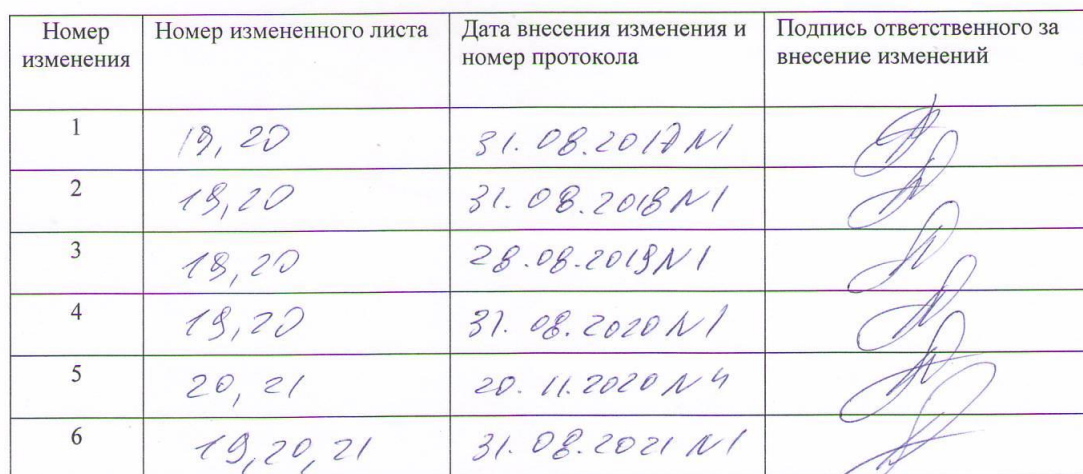 Номер изменения Номер измененного листа Дата внесения изменения и номер протокола Подпись ответственного за внесение изменений
1 19, 20 31.08.2017 N1
2 19,20 31.08.2018 N1
3 19,20 28.08.2019 N1
4 19,20 31.08.2020 N1
5 20, 21 20.11.2020 N4
6 19,20,21 31.08.2021 N1